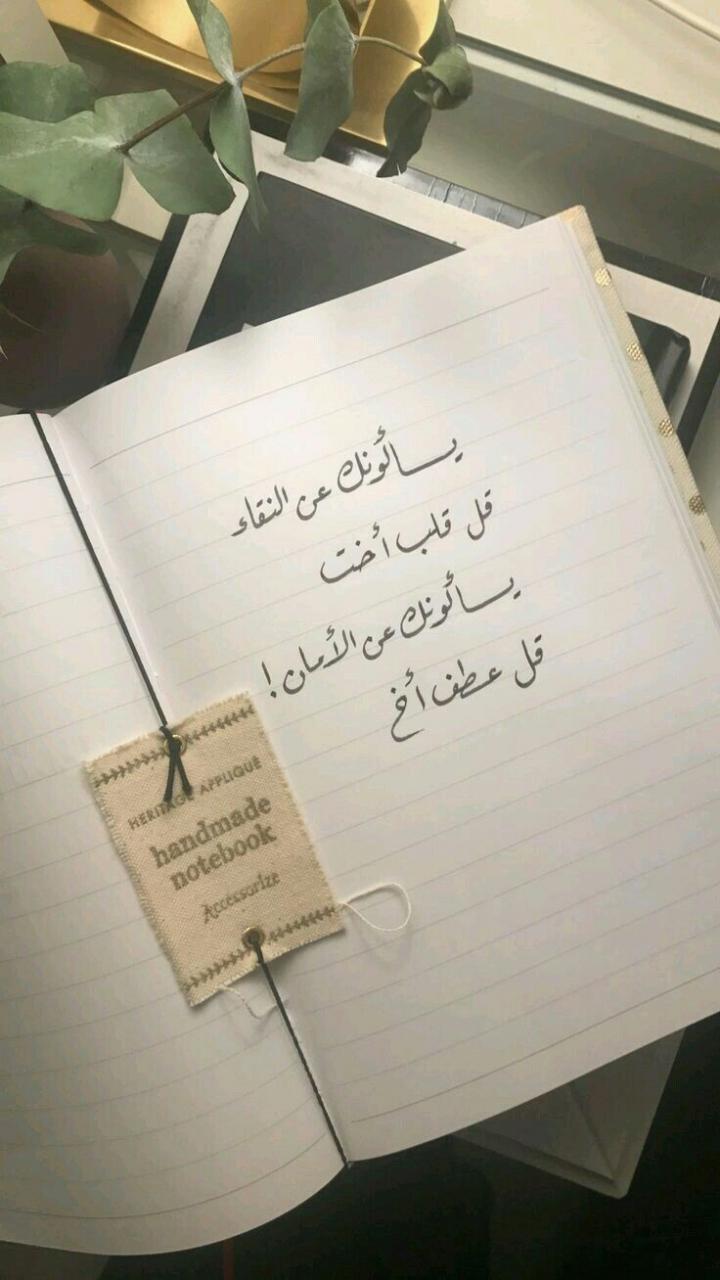 يسألونك عن النقاء
قل قلب أخت
يسألونك عن الأمان!
قل عطف أخ
HERITAGE APPLIQUÉ
handmade
notebook
Accessorize